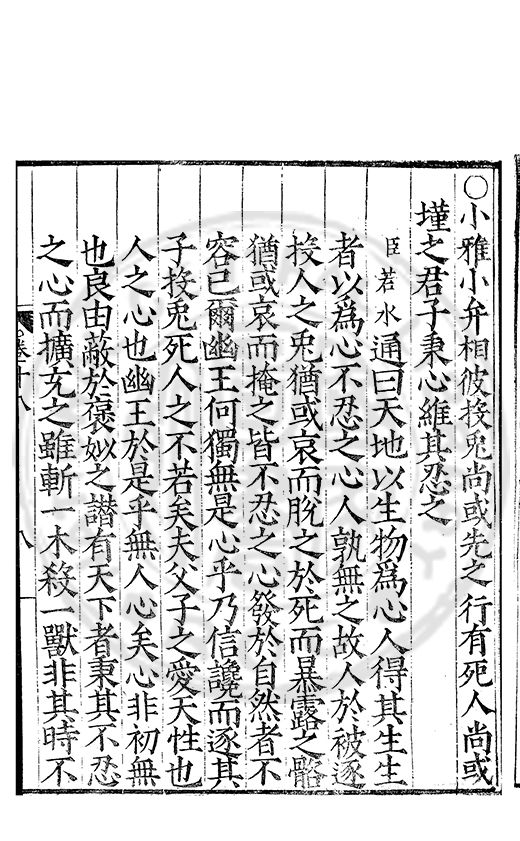 ○小雅小弁相彼投兎尚或先之行有死人尚或
墐之君子秉心維其忍之
臣若水通曰天地以生物爲心人得其生生
者以爲心不忍之心人孰無之故人於被逐
投人之兎猶或哀而脫之於死而暴露之骼
猶或哀而掩之皆不忍之心發於自然者不
容已爾幽王何獨無是心乎乃信讒而逐其
子投兎死人之不若矣夫父子之愛天性也
人之心也幽王於是乎無人心矣心非初無
也良由蔽於褒姒之譖有天下者秉其不忍
之心而擴充之雖斬一木殺一獸非其時不
卷十八
八